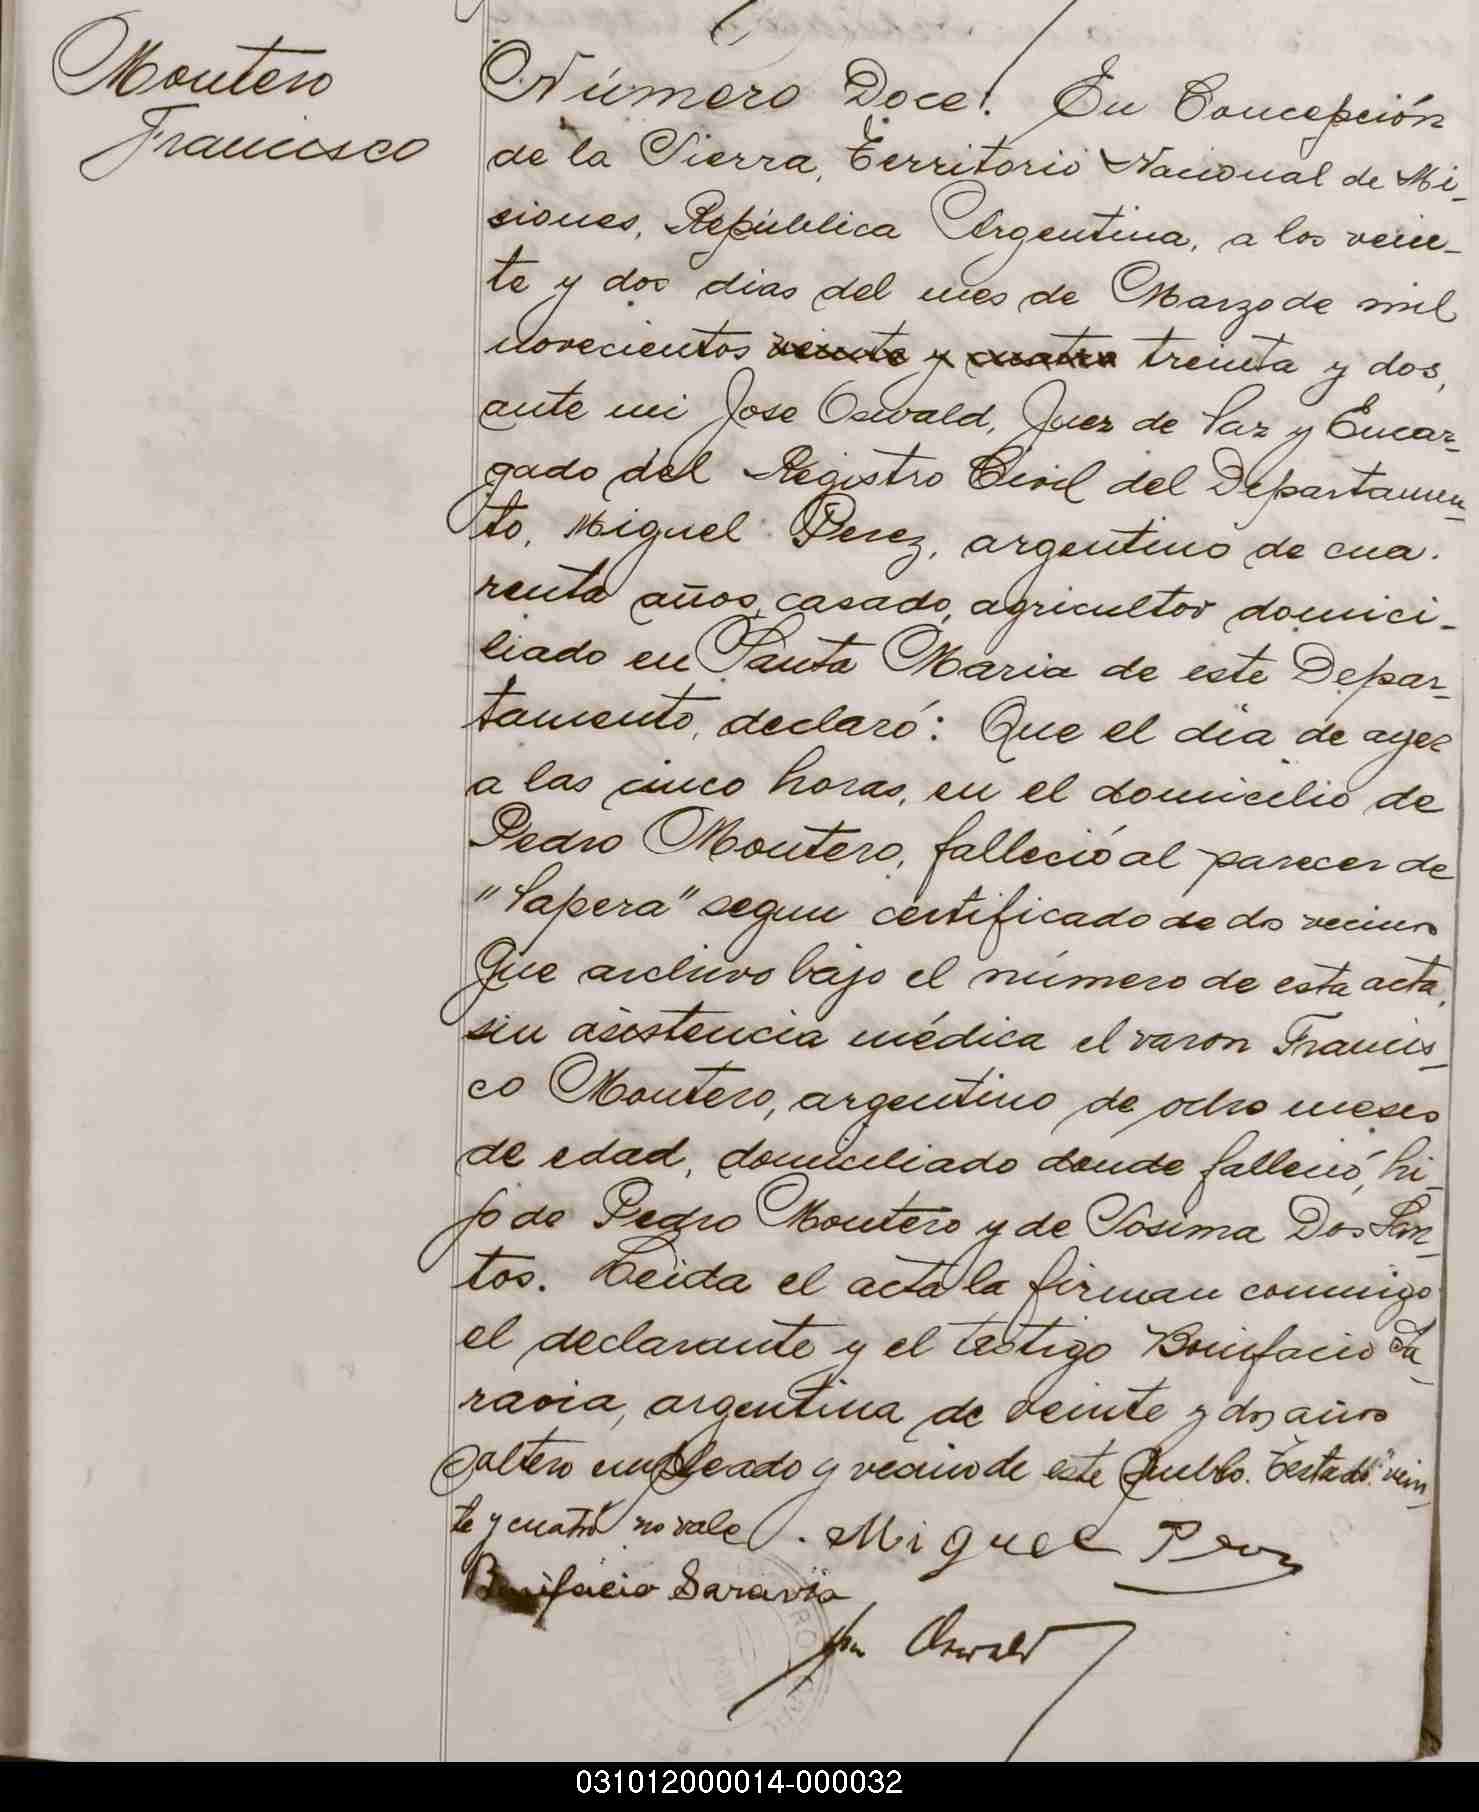 Montero
Francisco
Número Doce. En Concepción
de la Sierra, Territorio Nacional de Mi-
siones, República Argentina, a los vein-
te y dos dias del mes de Marzo de mil
novecientos veinte y cuatro treinta y dos,
ante mi Jose Oswald, Juez de Paz y Encar-
gado del Registro Civil del Departamen-
to, Miguel Perez, argentino de cua-
renta años, casado, agricultor domici-
liado en Santa Maria de este Depar-
tamento, declaró: Que el dia de ayer
a las cinco horas, en el domicilio de
Pedro Montero, falleció al parecer de
"Papera" segun certificado de dos vecinos
que archivo bajo el número de esta acta,
sin asistencia médica el varon Francis-
co Montero, argentino de ocho meses
de edad, domiciliado donde falleció, hi-
jo de Pedro Montero y de Sosima Dos San-
tos. Leida el acta la firman conmigo
el declarante y el testigo Bonifacio Sa-
ravia, argentina de veinte y dos años
soltero empleado y vecino de este pueblo. Testado "vein-
te y cuatro" no vale. Miguel Perez
Bonifacio Saravia
Jose Oswald
031012000014-000032